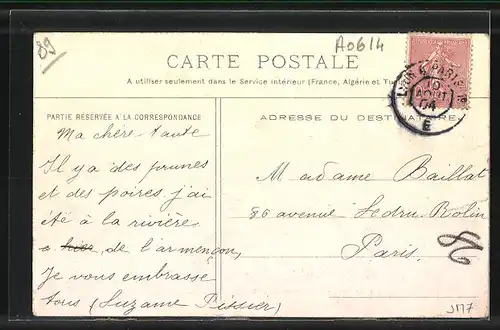 89
A0614
CARTE POSTALE
A utiliser seulement dans le Service intérieur (France, Algérie et Tu
PARTIE RÉSERVÉE A LA CORRESPONDANCE
ADRESSE DU DESTINATAIRE
10
AOUT
04
E
Ma chère tante
Il y a des prunes
et des poires, j'ai
été à la rivière
hier, de l'armençon,
Je vous embrasse
tous (Suzanne Tissier)
Madame Baillat
86 avenue Ledru Rolin
Paris
86